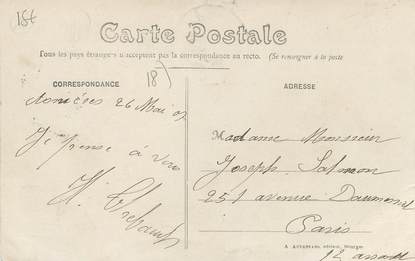 18t
Carte Postale
Tous les pays étrangers n'acceptent pas la correspondance au recto. (Se renseigner à la poste
18)
CORRESPONDANCE
26 Mai 07
Je pense à vous
H.
ADRESSE
Madame Monsieur
Joseph Salmon
251 avenue Daumesnil
Paris
12 arrondt
A. AUXENFANS, éditeur, Bourges